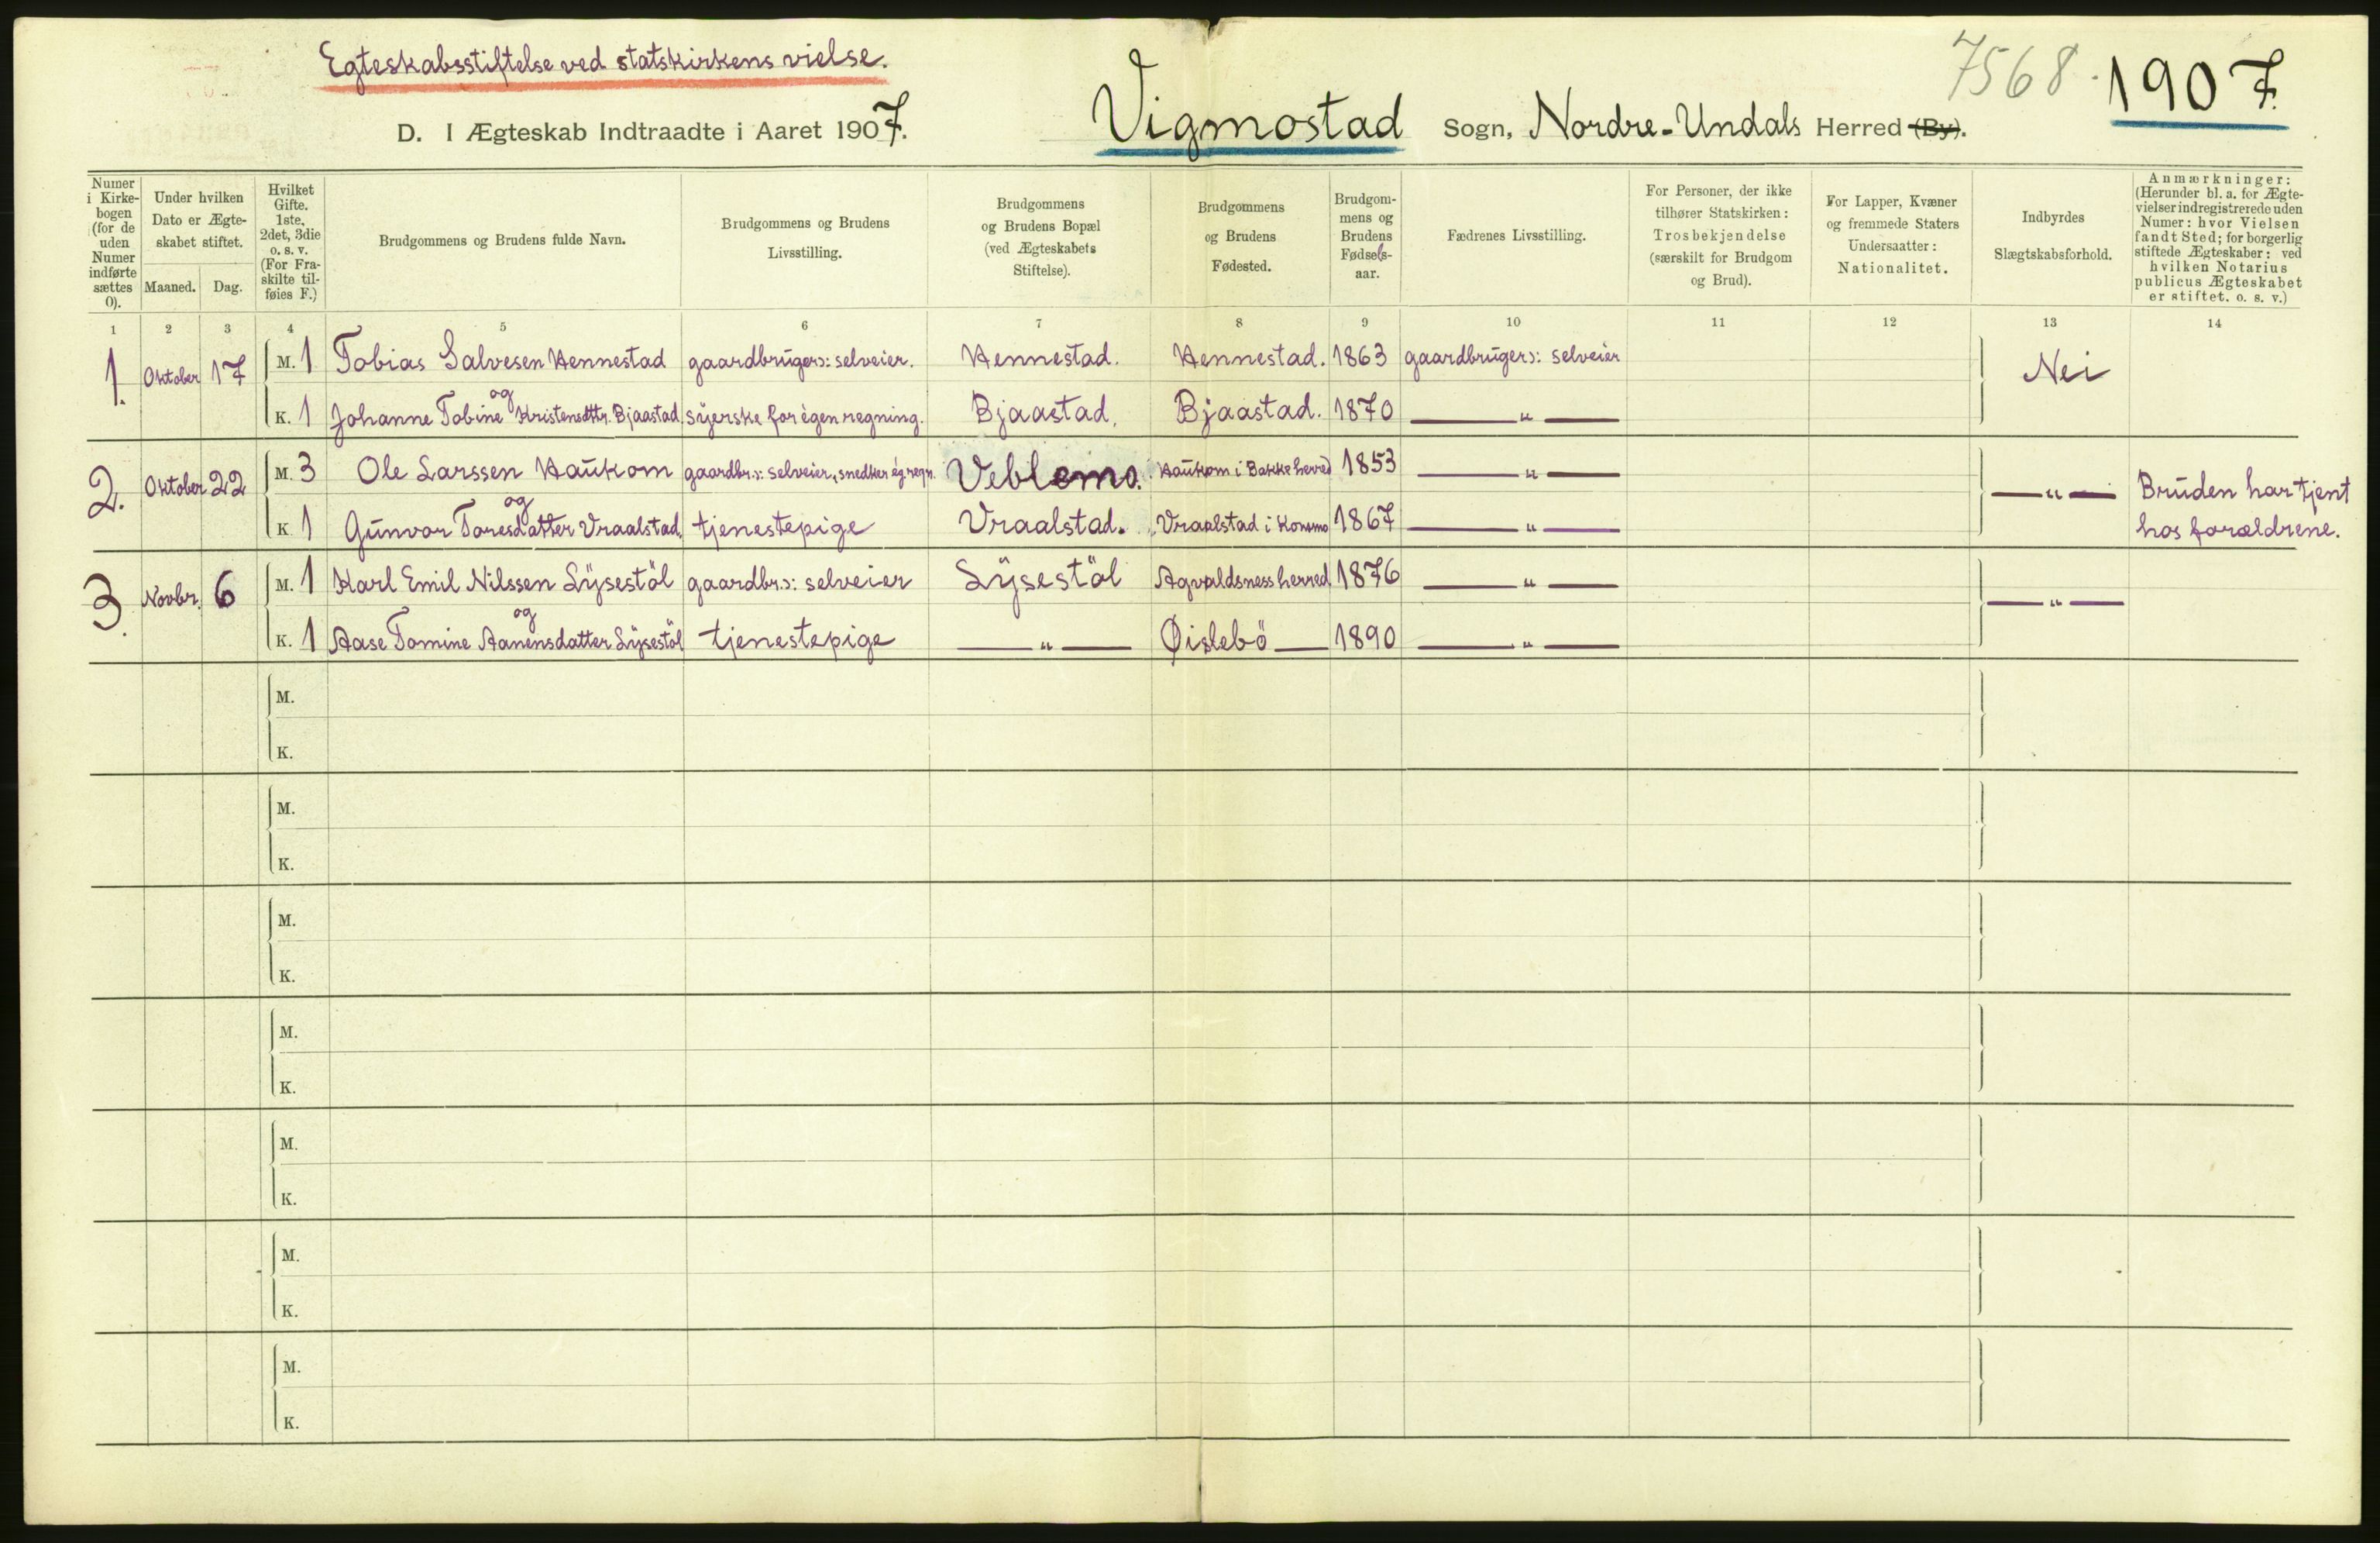 Egteskabsstiftelse ved statskirkens vielse.
7568. 1907.
D. I Ægteskab Indtraadte i Aaret 1907. Vigmostad Sogn, Nordre-Undals Herred (By).
Numer i Kirkebogen (for de uden Numer indførte sættes 0).
Under hvilken Dato er Ægteskabet stiftet.
Maaned. Dag.
Hvilket Gifte. 1ste, 2det, 3die o. s. v. (For Fraskilte tilføies F.)
Brudgommens og Brudens fulde Navn.
Brudgommens og Brudens Livsstilling.
Brudgommens og Brudens Bopæl (ved Ægteskabets Stiftelse).
Brudgommens og Brudens Fødested.
Brudgommens og Brudens Fødselsaar.
Fædrenes Livsstilling.
For Personer, der ikke tilhører Statskirken: Trosbekjendelse (særskilt for Brudgom og Brud).
For Lapper, Kvæner og fremmede Staters Undersaatter: Nationalitet.
Indbyrdes Slægtskabsforhold.
Anmærkninger: (Herunder bl. a. for Ægtevielser indregistrerede uden Numer: hvor Vielsen fandt Sted; for borgerlig stiftede Ægteskaber: ved hvilken Notarius publicus Ægteskabet er stiftet. o. s. v.)
1 2 3 4 5 6 7 8 9 10 11 12 13 14
1. Oktober 17 M. 1 Tobias Salvesen Hennestad gaardbruger ɔ: selveier. Hennestad. Hennestad. 1863 gaardbruger ɔ: selveier Nei
og
K. 1 Johanne Tobine Kristensdttr. Bjaastad. syerske for egen regning. Bjaastad. Bjaastad. 1870 — " —
2. Oktober 22 M. 3 Ole Larssen Haukom gaardbr. ɔ: selveier, snedker eg. regn. Veblemo. Haukom i Bakke herred 1853 — " — — " — Bruden har tjent
og
K. 1 Gunvor Toresdatter Vraalstad. tjenestepige Vraalstad. Vraalstad i Konsmo 1867 — " — hos forældrene.
3. Novbr. 6 M. 1 Karl Emil Nilssen Lysestöl gaardbr. ɔ: selveier Lysestöl Agvaldsness herred 1876 — " — — " —
og
K. 1 Aase Tomine Aanensdatter Lysestöl tjenestepige — " — Øislebö — 1890 — " —
M.
K.
M.
K.
M.
K.
M.
K.
M.
K.
M.
K.
M.
K.